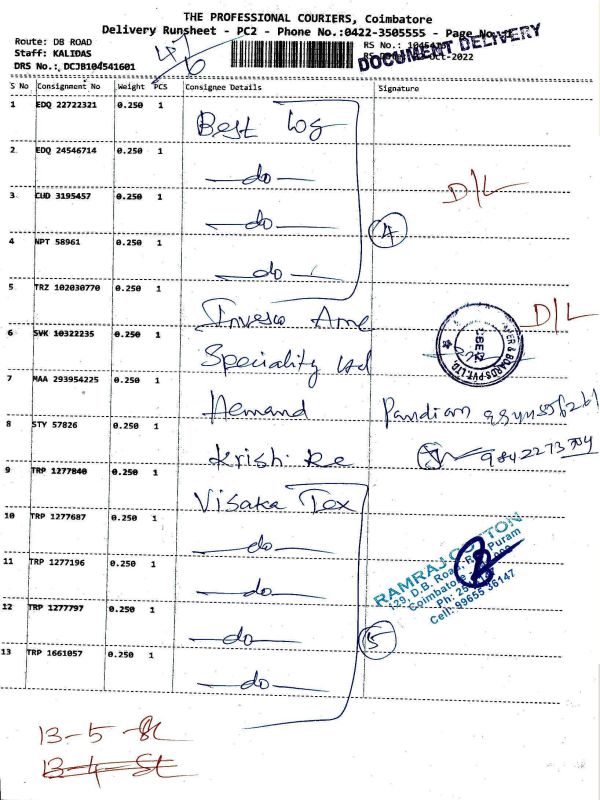 THE PROFESSIONAL COURIERS, Coimbatore
Delivery Runsheet - PC2 - Phone No.:0422-3505555 - Page No.:
Route: DB ROAD
Staff: KALIDAS
DRS No.: DCJB104541601
RS No.:
Oct-2022
DOCUMENT DELIVERY
S No Consignment No Weight PCS Consignee Details Signature
1 EDQ 22722321 0.250 1 Best Log
2 EDQ 24546714 0.250 1 —do—
D/L
3 CUD 3195457 0.250 1 —do—
4
4 NPT 58961 0.250 1 —do—
5 TRZ 102030770 0.250 1 Invesco Ame
D/L
6 SVK 10322235 0.250 1 Speciality Ltd
& BOARDS PVT. LTD.
7 MAA 293954225 0.250 1 Demand Pandian
8 STY 57826 0.250 1 Krish. Re
9842273704
9 TRP 1277840 0.250 1 Visaka Tex
10 TRP 1277687 0.250 1 —do—
RAMRAJ COTTON
129, D.B. Road, Puram
Coimbatore
Ph:
Cell: 9965 58147
11 TRP 1277196 0.250 1 —do—
12 TRP 1277797 0.250 1 —do—
5
13 TRP 1661057 0.250 1 —do—
13-5-St
13-4-St